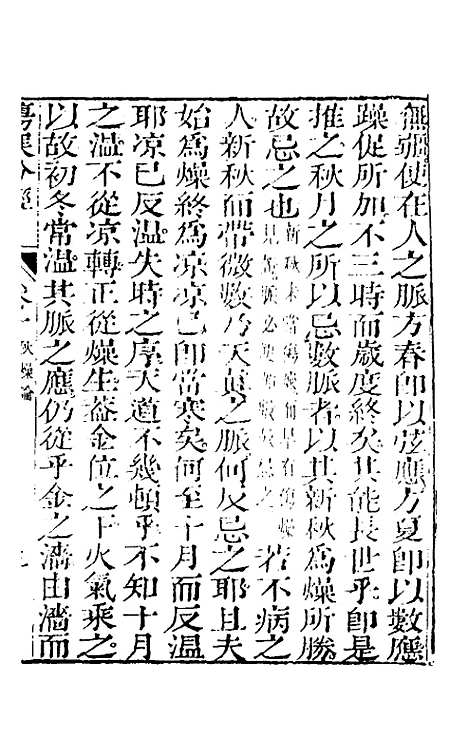 無疆使在人之脈方春卽以弦應方夏卽以數應
躁促所加不三時而歲度終矣其能長世乎卽是
推之秋月之所以忌數脈者以其新秋爲燥所勝
故忌之也新秋未當寒 見 脈必 故忌之若不病之
人新秋而帶微數乃天眞之脈何反忌之耶且夫
始爲燥終爲凉凉已卽當寒矣何至十月而反温
耶凉已反温失時之序天道不幾頓乎不知十月
之温不從凉轉正從燥生蓋金位之下火氣乘之
以故初冬常温其脈之應仍從乎金之濇由濇而
秋燥論